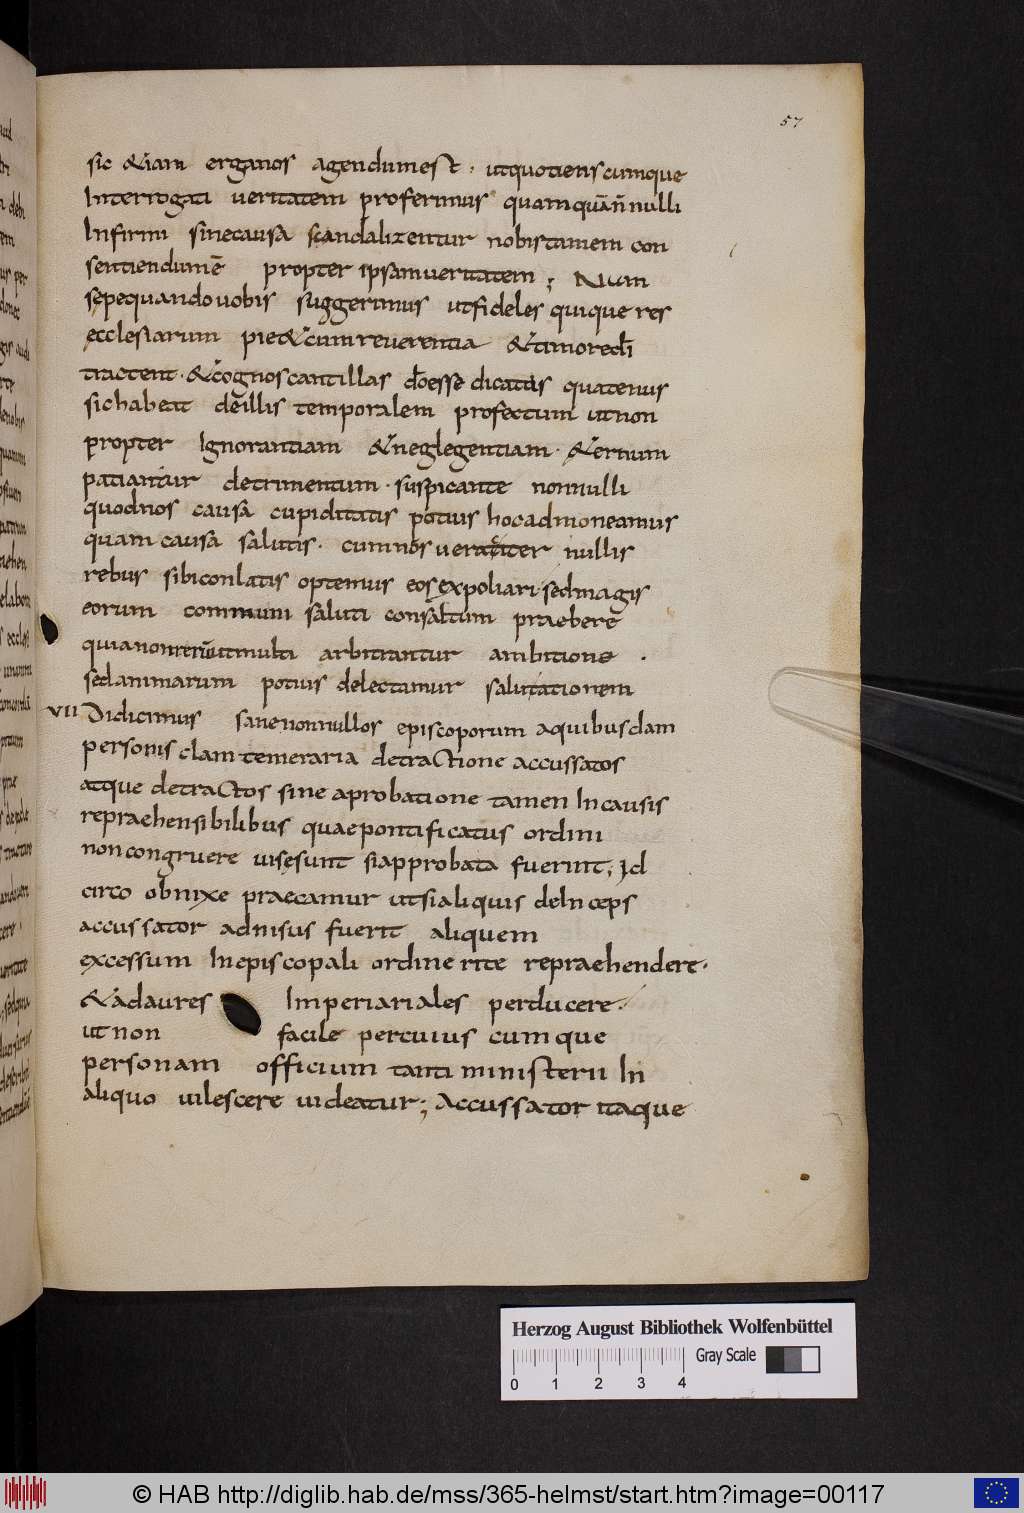 57
sic &iam erganos agendumest · utquotienscumque
Interrogati veritatem proferimus quamquā̄nnulli
Infirmi sinecausa scandalizentur nobistamem con
sentiendumē propter ipsamveritatem ; Nam
sepequandovobis suggerimus utfideles quique res
ecclesiarum pie&cumreverentia &timoredī
tractent · &cognoscantillas dōesse dicatas quatenus
sichabeat deillis temporalem profectum utnon
propter Ignorantiam &neglegentiam · &ernum
patiantur detrimentum · suspicante nonnulli
quodnos causa cupiditatis potius hocadmoneamus
quam causa salutis · cumnos veraciter nullis
rebus sibiconlatis optemus eos expoliari · sedmagis
eorum communi saluti consultum praebere
quianonrerūutmulti arbitrantur ambitione ·
sedanimarum potius delectamur salutationem
VII Didicimus sanenonnullos episcoporum aquibusdam
personis clam temeraria detractione accussatos
atque detractos sine aprobatione tamen Incausis
repraehensibilibus quaepontificatus ordini
noncongruere visesunt siapprobata fuerint ; Id
circo obnixe praecamur utsialiquis deInceps
accussator adnisus fuerit aliquem
excessum Inepiscopali ordine rite repraehendere ·
&adaures Imperiariales perducere ·
ut non facile percuius cumque
personam officium tanti ministerii In
aliquo vilescere videatur ; Accussator itaque
Herzog August Bibliothek Wolfenbüttel
Gray Scale
0 1 2 3 4
© HAB http://diglib.hab.de/mss/365-helmst/start.htm?image=00117